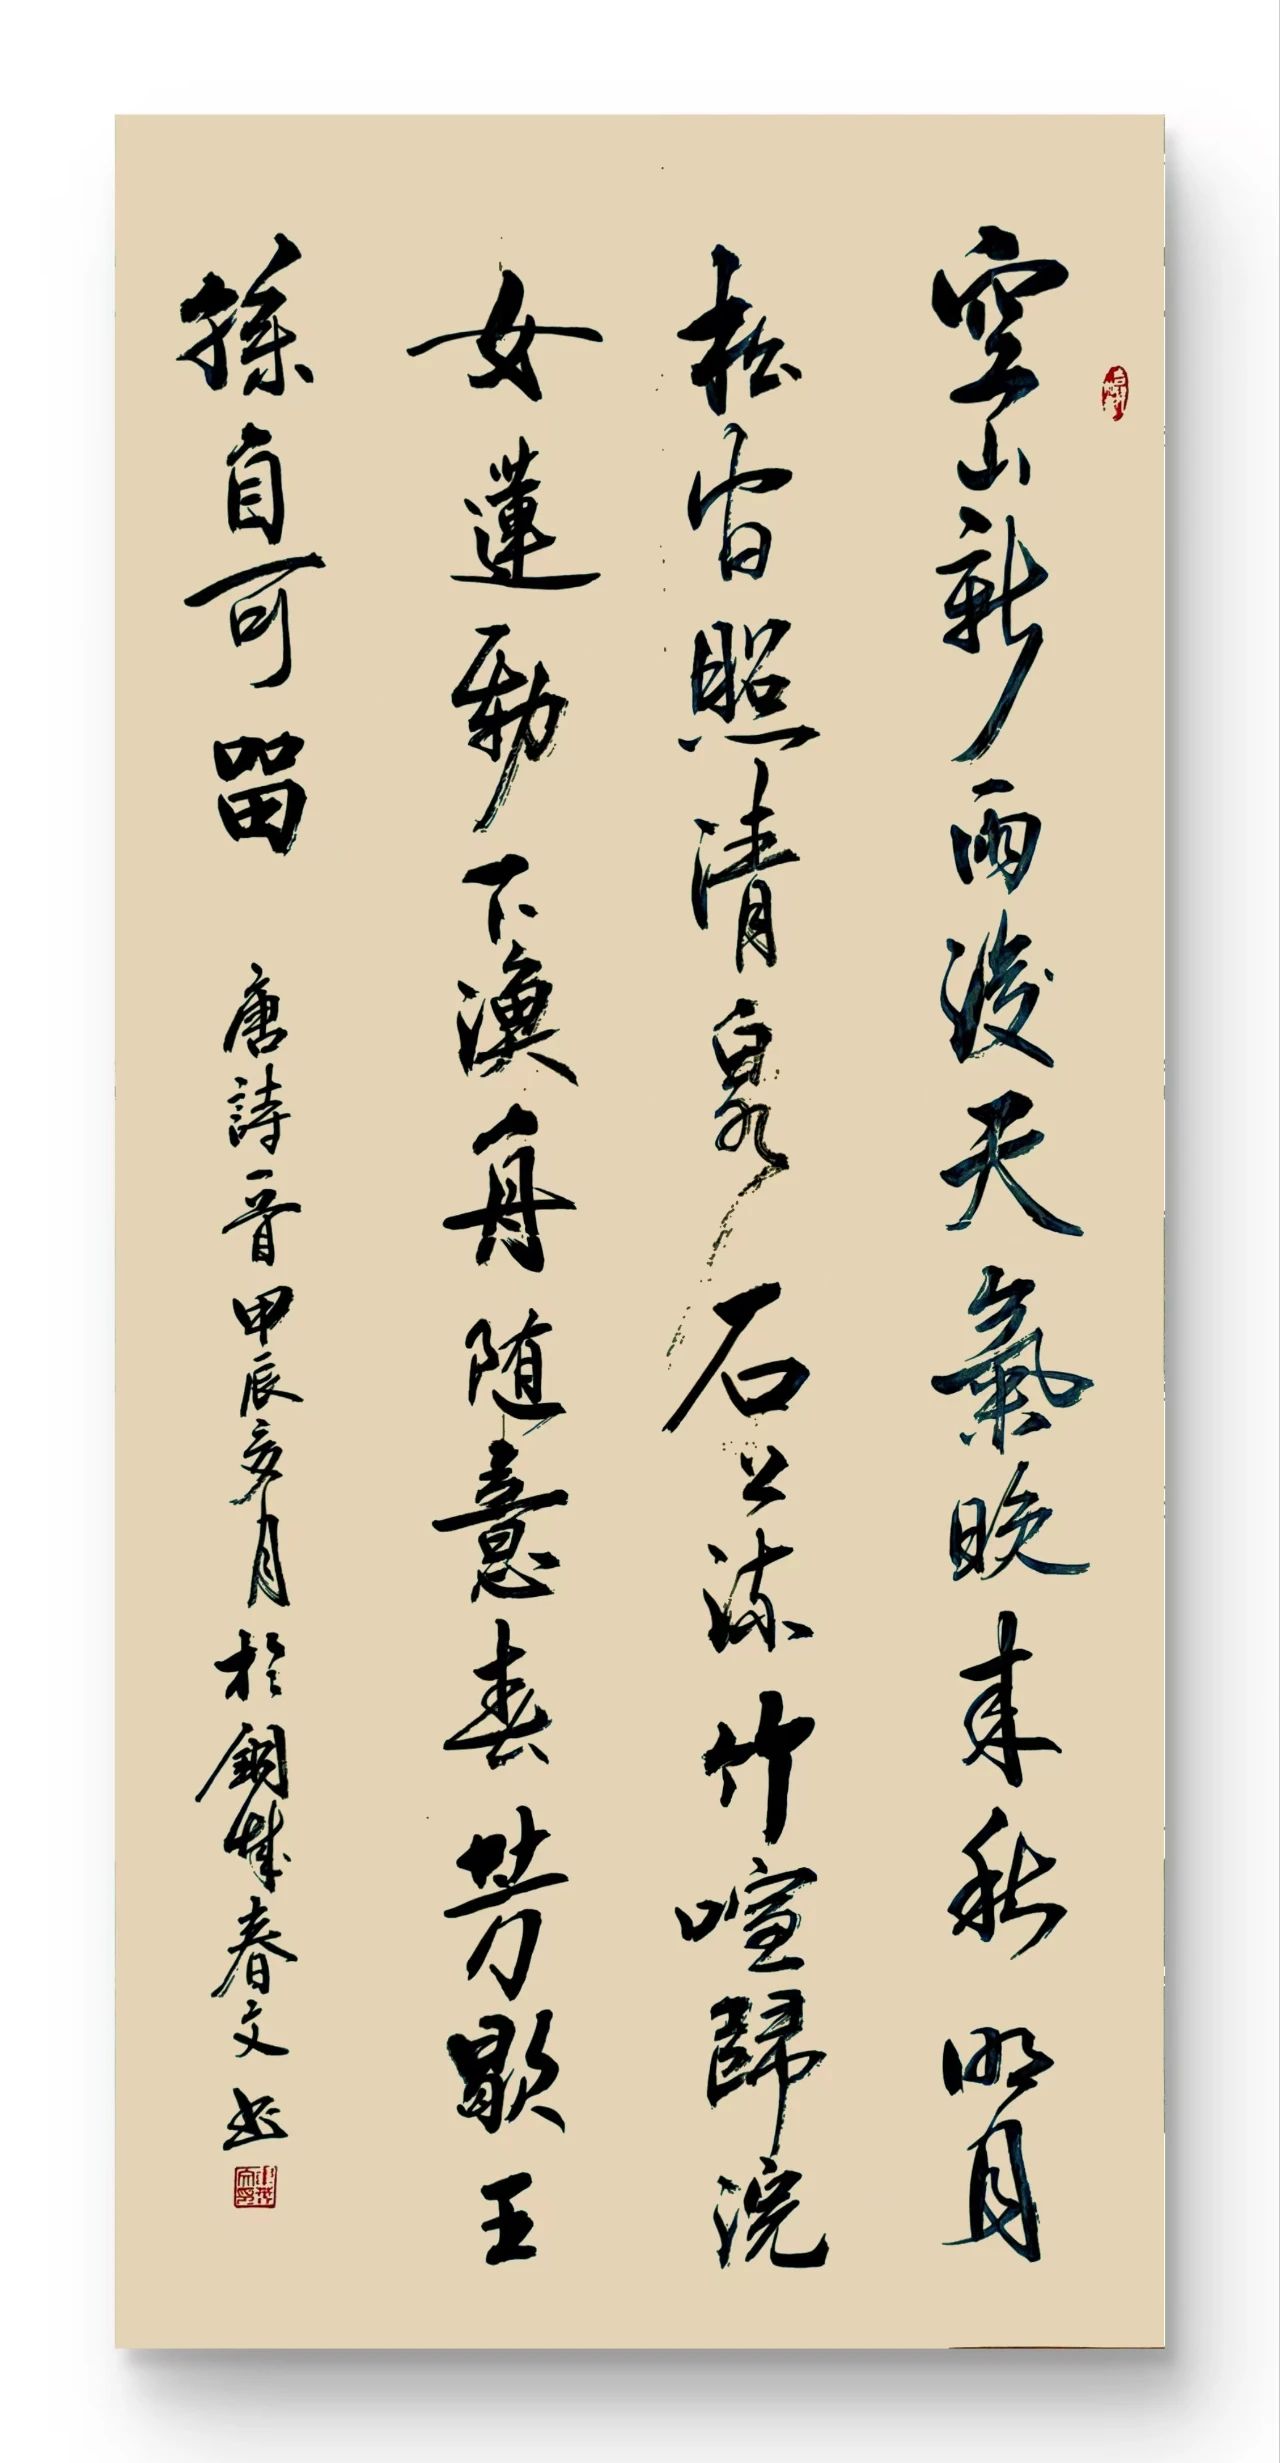 空山新雨後天氣晚来秋明月
松间照清泉石上流竹喧歸浣
女蓮動下漁舟随意春芳歇王
孫自可留 唐詩一首甲辰亥月於銅城春文书